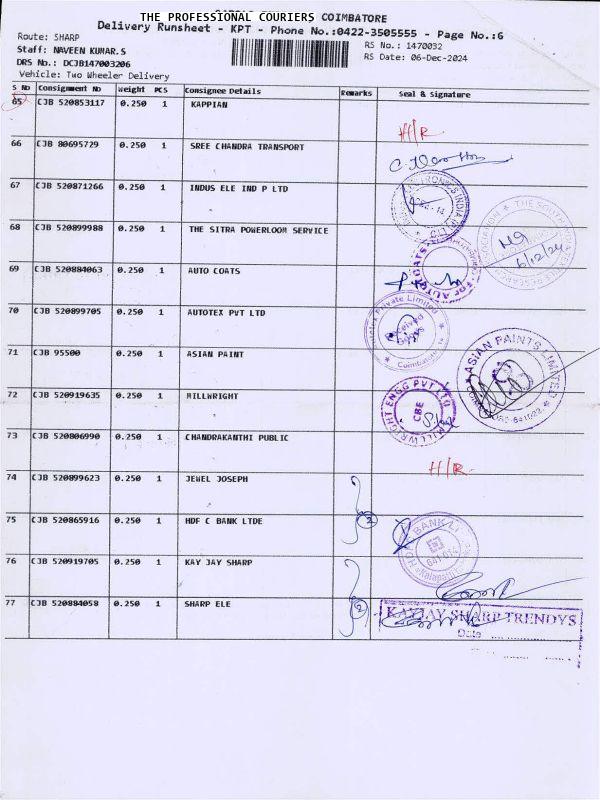 THE PROFESSIONAL COURIERS COIMBATORE
Delivery Runsheet - KPT - Phone No.:0422-3505555 - Page No.:6
Route: SHARP
RS No.: 1470032
Staff: NAVEEN KUMAR.S
RS Date: 06-Dec-2024
DRS No.: DCJB147003206
Vehicle: Two Wheeler Delivery
S No Consignment No Weight PCS Consignee Details Remarks Seal & Signature
65 CJB 520853117 0.250 1 KAPPIAN
H/R
66 CJB 80695729 0.250 1 SREE CHANDRA TRANSPORT
67 CJB 520871266 0.250 1 INDUS ELE IND P LTD
68 CJB 520899988 0.250 1 THE SITRA POWERLOOM SERVICE
6/12/24
69 CJB 520884063 0.250 1 AUTO COATS
For AUTO COATS
70 CJB 520899705 0.250 1 AUTOTEX PVT LTD
Private Limited
Coimbatore
71 CJB 95500 0.250 1 ASIAN PAINT
ASIAN PAINTS LIMITED
72 CJB 520919635 0.250 1 MILLWRIGHT
MILLWRIGHT ENGG PVT LTD
CBE
73 CJB 520806990 0.250 1 CHANDRAKANTHI PUBLIC
H/R
74 CJB 520899623 0.250 1 JEWEL JOSEPH
75 CJB 520865916 0.250 1 HDF C BANK LTDE
2
HDFC BANK LTD
76 CJB 520919705 0.250 1 KAY JAY SHARP
77 CJB 520884058 0.250 1 SHARP ELE
2
KAYJAY SHARP TRENDYS
Date